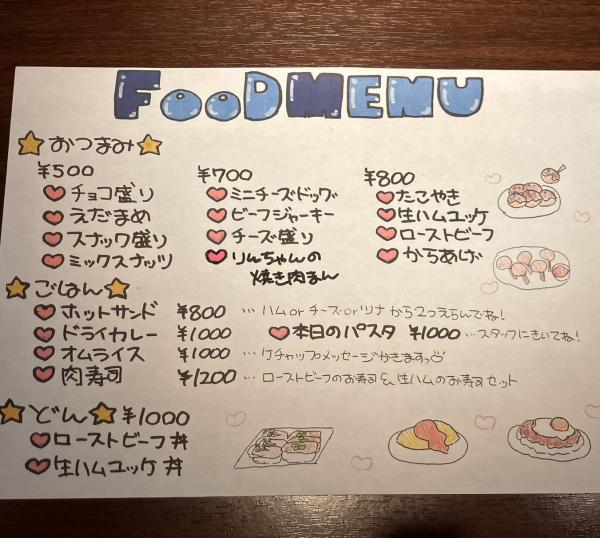 FOOD MENU
おつまみ
¥500
チョコ盛り
えだまめ
スナック盛り
ミックスナッツ
¥700
ミニチーズドッグ
ビーフジャーキー
チーズ盛り
りんちゃんの
焼き肉まん
¥800
たこやき
生ハムユッケ
ローストビーフ
からあげ
ごはん
ホットサンド ¥800 … ハム or チーズ or ツナ から2つえらんでね!
ドライカレー ¥1000 本日のパスタ ¥1000 … スタッフにきいてね!
オムライス ¥1000 … ケチャップメッセージかきますっ
肉寿司 ¥1200 … ローストビーフのお寿司&生ハムのお寿司セット
どん ¥1000
ローストビーフ丼
生ハムユッケ丼